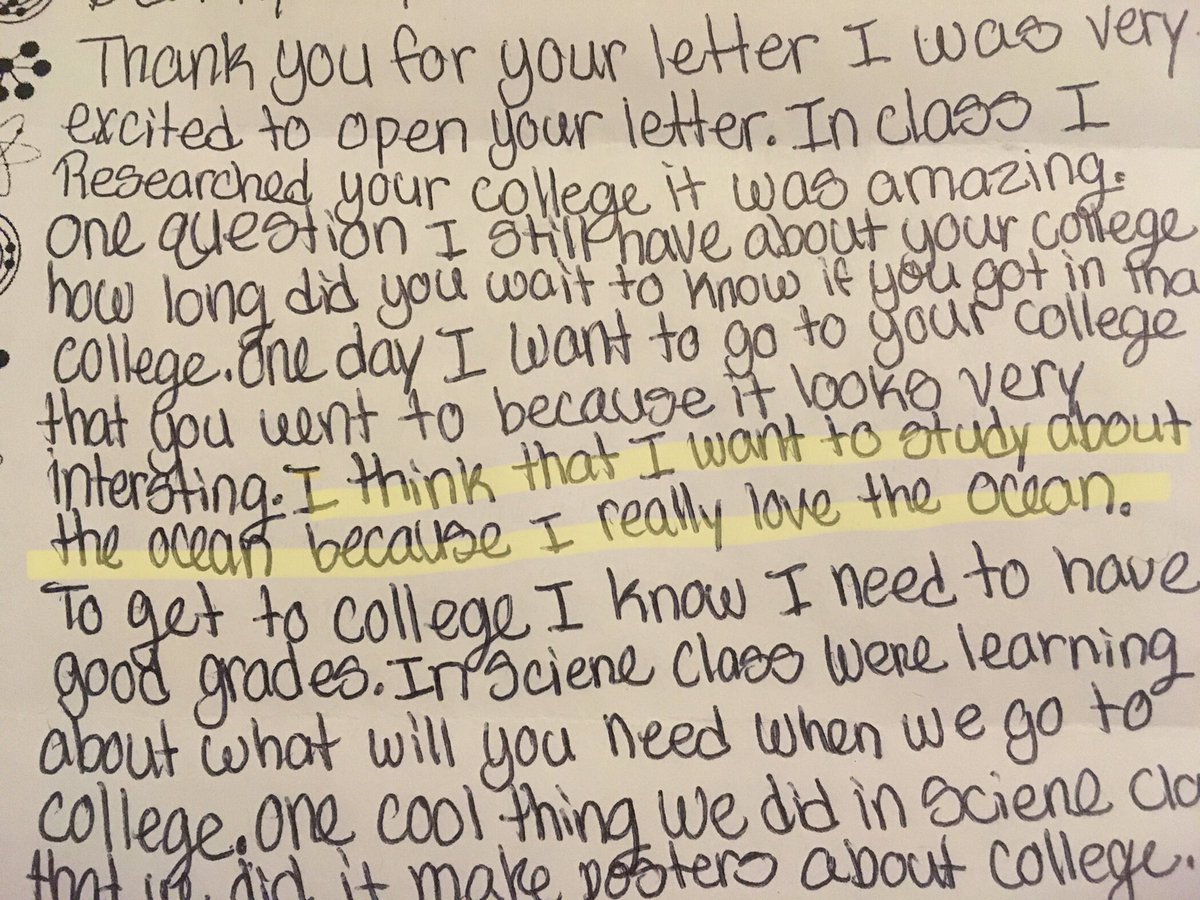 Thank you for your letter I was very
excited to open your letter. In class I
Researched your college it was amazing.
one question I still have about your college
how long did you wait to know if you got in tha
college. One day I want to go to your college
that you went to because it looks very
intersting. I think that I want to study about
the ocean because I really love the ocean.
To get to college I know I need to have
good grades. In sciene class were learning
about what will you need when we go to
college. one cool thing we did in sciene cla
that did it make posters about college.